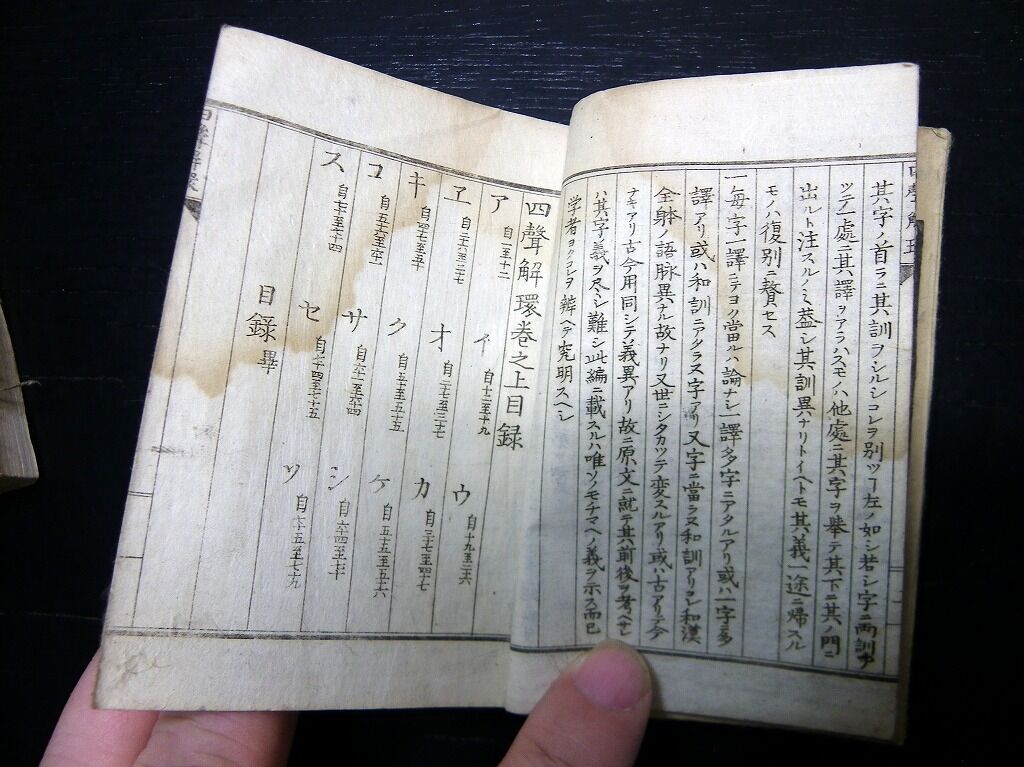 其字ノ首ラニ其訓ヲシルシコレヲ別ツヿ左ノ如シ若シ字ニ両訓ヲ
ツテ一處ニ其譯ヲアラハスモノハ他處ニ其字ヲ擧テ其下ニ其ノ門ニ
出ルト注スルノミ蓋シ其訓異ナリトイヘトモ其義一途ニ帰スル
モノハ復別ニ贅セス
一毎字一譯ニテヨク當ルハ論ナシ一譯多字ニアタルアリ或ハ一字ニ多
譯アリ或ハ和訓ニアタラヌ字アリ又字ニ當ラヌ和訓アリコレ和漢
全躰ノ語脉異ナル故ナリ又世ニシタカツテ変スルアリ或ハ古アリテ今
ナキアリ古今用同シテ義異アリ故ニ原文ニ就テ其前後ヲ考ヘサレ
ハ其字ノ義ヲ尽シ難シ此編ニ載スルハ唯ソノモチマヘノ義ヲ示ス而已
学者ヨクコレヲ辨ヘテ究明スヘシ
四聲解環巻之上目録
ア 自一至十二 イ 自十二至十九 ウ 自十九至二六
ヱ 自二六至二七 オ 自二七至三七 カ 自三七至四七
キ 自四七至五十 ク 自五十至五五 ケ 自五五至五六
コ 自五六至六一 サ 自六一至六四 シ 自六四至七十
ス 自七十至七四 セ 自七四至七五 ソ 自七五至七九
目録畢